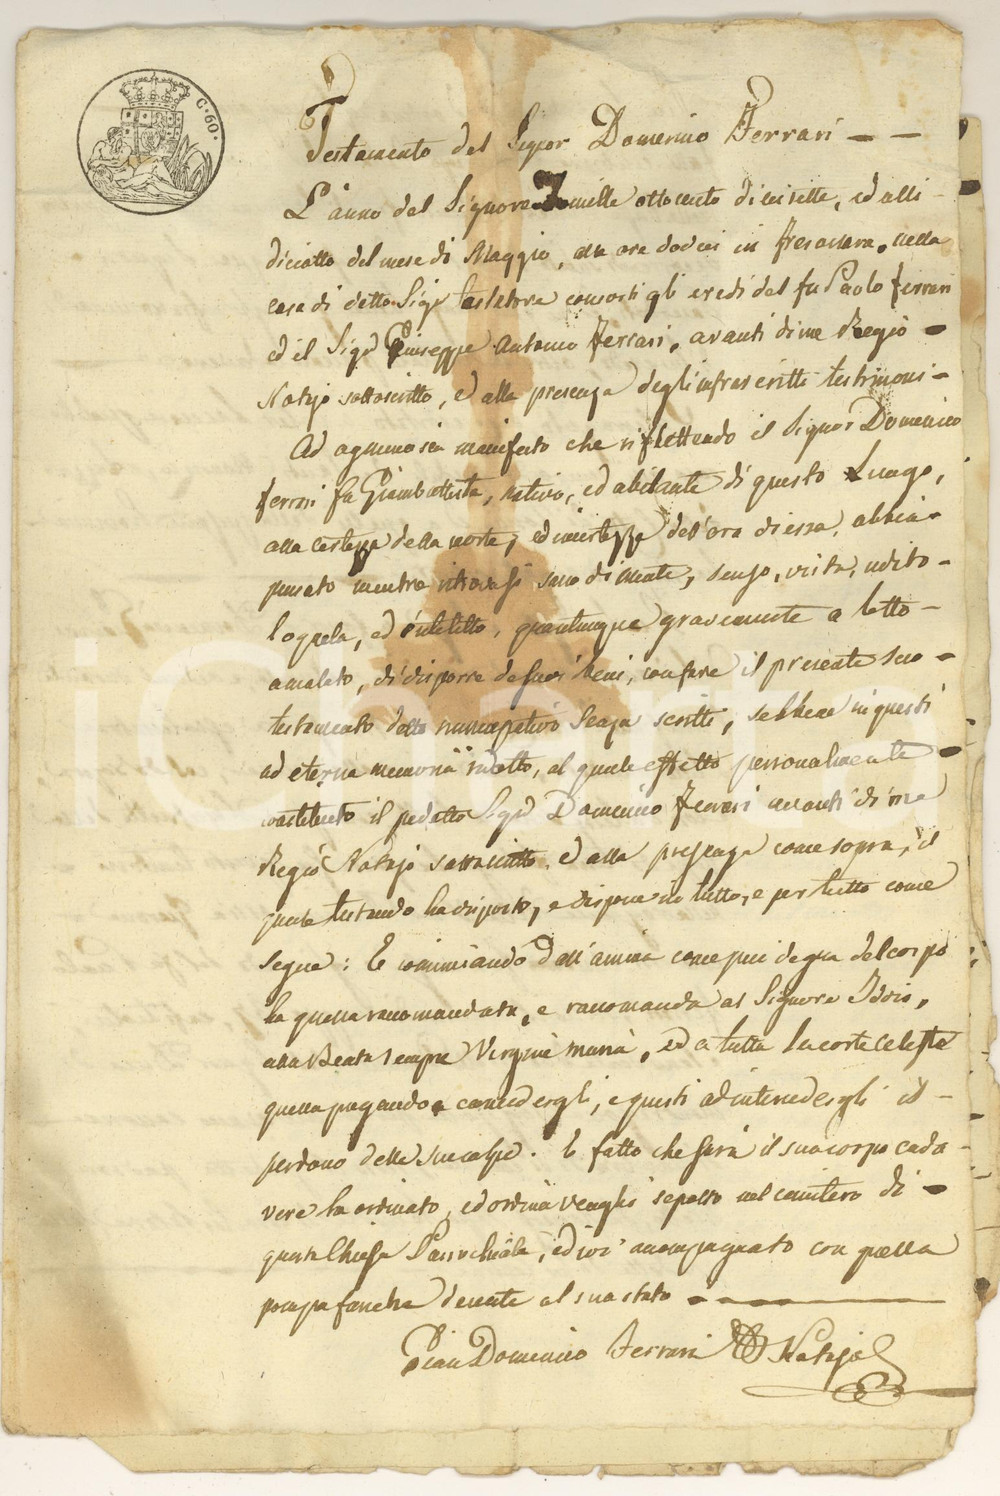 C. 60.
Testamento del Signor Domenico Ferrari
L'anno del Signore mille ottocento diciisette, ed alli
diciotto del mese di Maggio, alle ore dodici in Fresonara, nella
casa di detto Sigr testatore consorti gli eredi del fu Paolo Ferrari
ed il Sigr Giuseppe Antonio Ferrari, avanti di me Regio
Notajo sottoscritto, ed alla presenza degli infrascritti testimoni
Ad ognuno sia manifesto che riflettendo il Signor Domenico
Ferrari fu Giambattista, nativo, ed abitante di questo Luogo,
alla certezza della morte, ed incertezza dell'ora di essa, abbia
pensato mentre ritrovasi sano di mente, senso, vista, udito
loquela, ed intelletto, quantunque gravemente a letto
amalato, di disporre de suoi beni, con fare il presente suo
testamento detto nuncupativo senza scritti, sebbene in questi
ad eterna memoria ridotto, al quale effetto personalmente
constituito il predetto Sigr Domenico Ferrari avanti di me
Regio Notajo sottoscritto, ed alla presenza come sopra, il
quale testando ha disposto, e dispone in tutto, e per tutto come
segue: E cominciando dall'anima come più degna del corpo
ha quella raccomandata, e raccomanda al Signore Iddio,
alla Beata sempre Vergine Maria, ed a tutta la corte celeste
quella pregando a concedergli, e questi ad intercedergli il
perdono delle sue colpe. E fatto che sarà il suo corpo cada
vere ha ordinato, ed ordina venghi sepolto nel cimitero di
questa Chiesa Parrochiale, ed ivi accompagnato con quella
pompa funebre decente al suo stato
Gian Domenico Ferrari Notajo